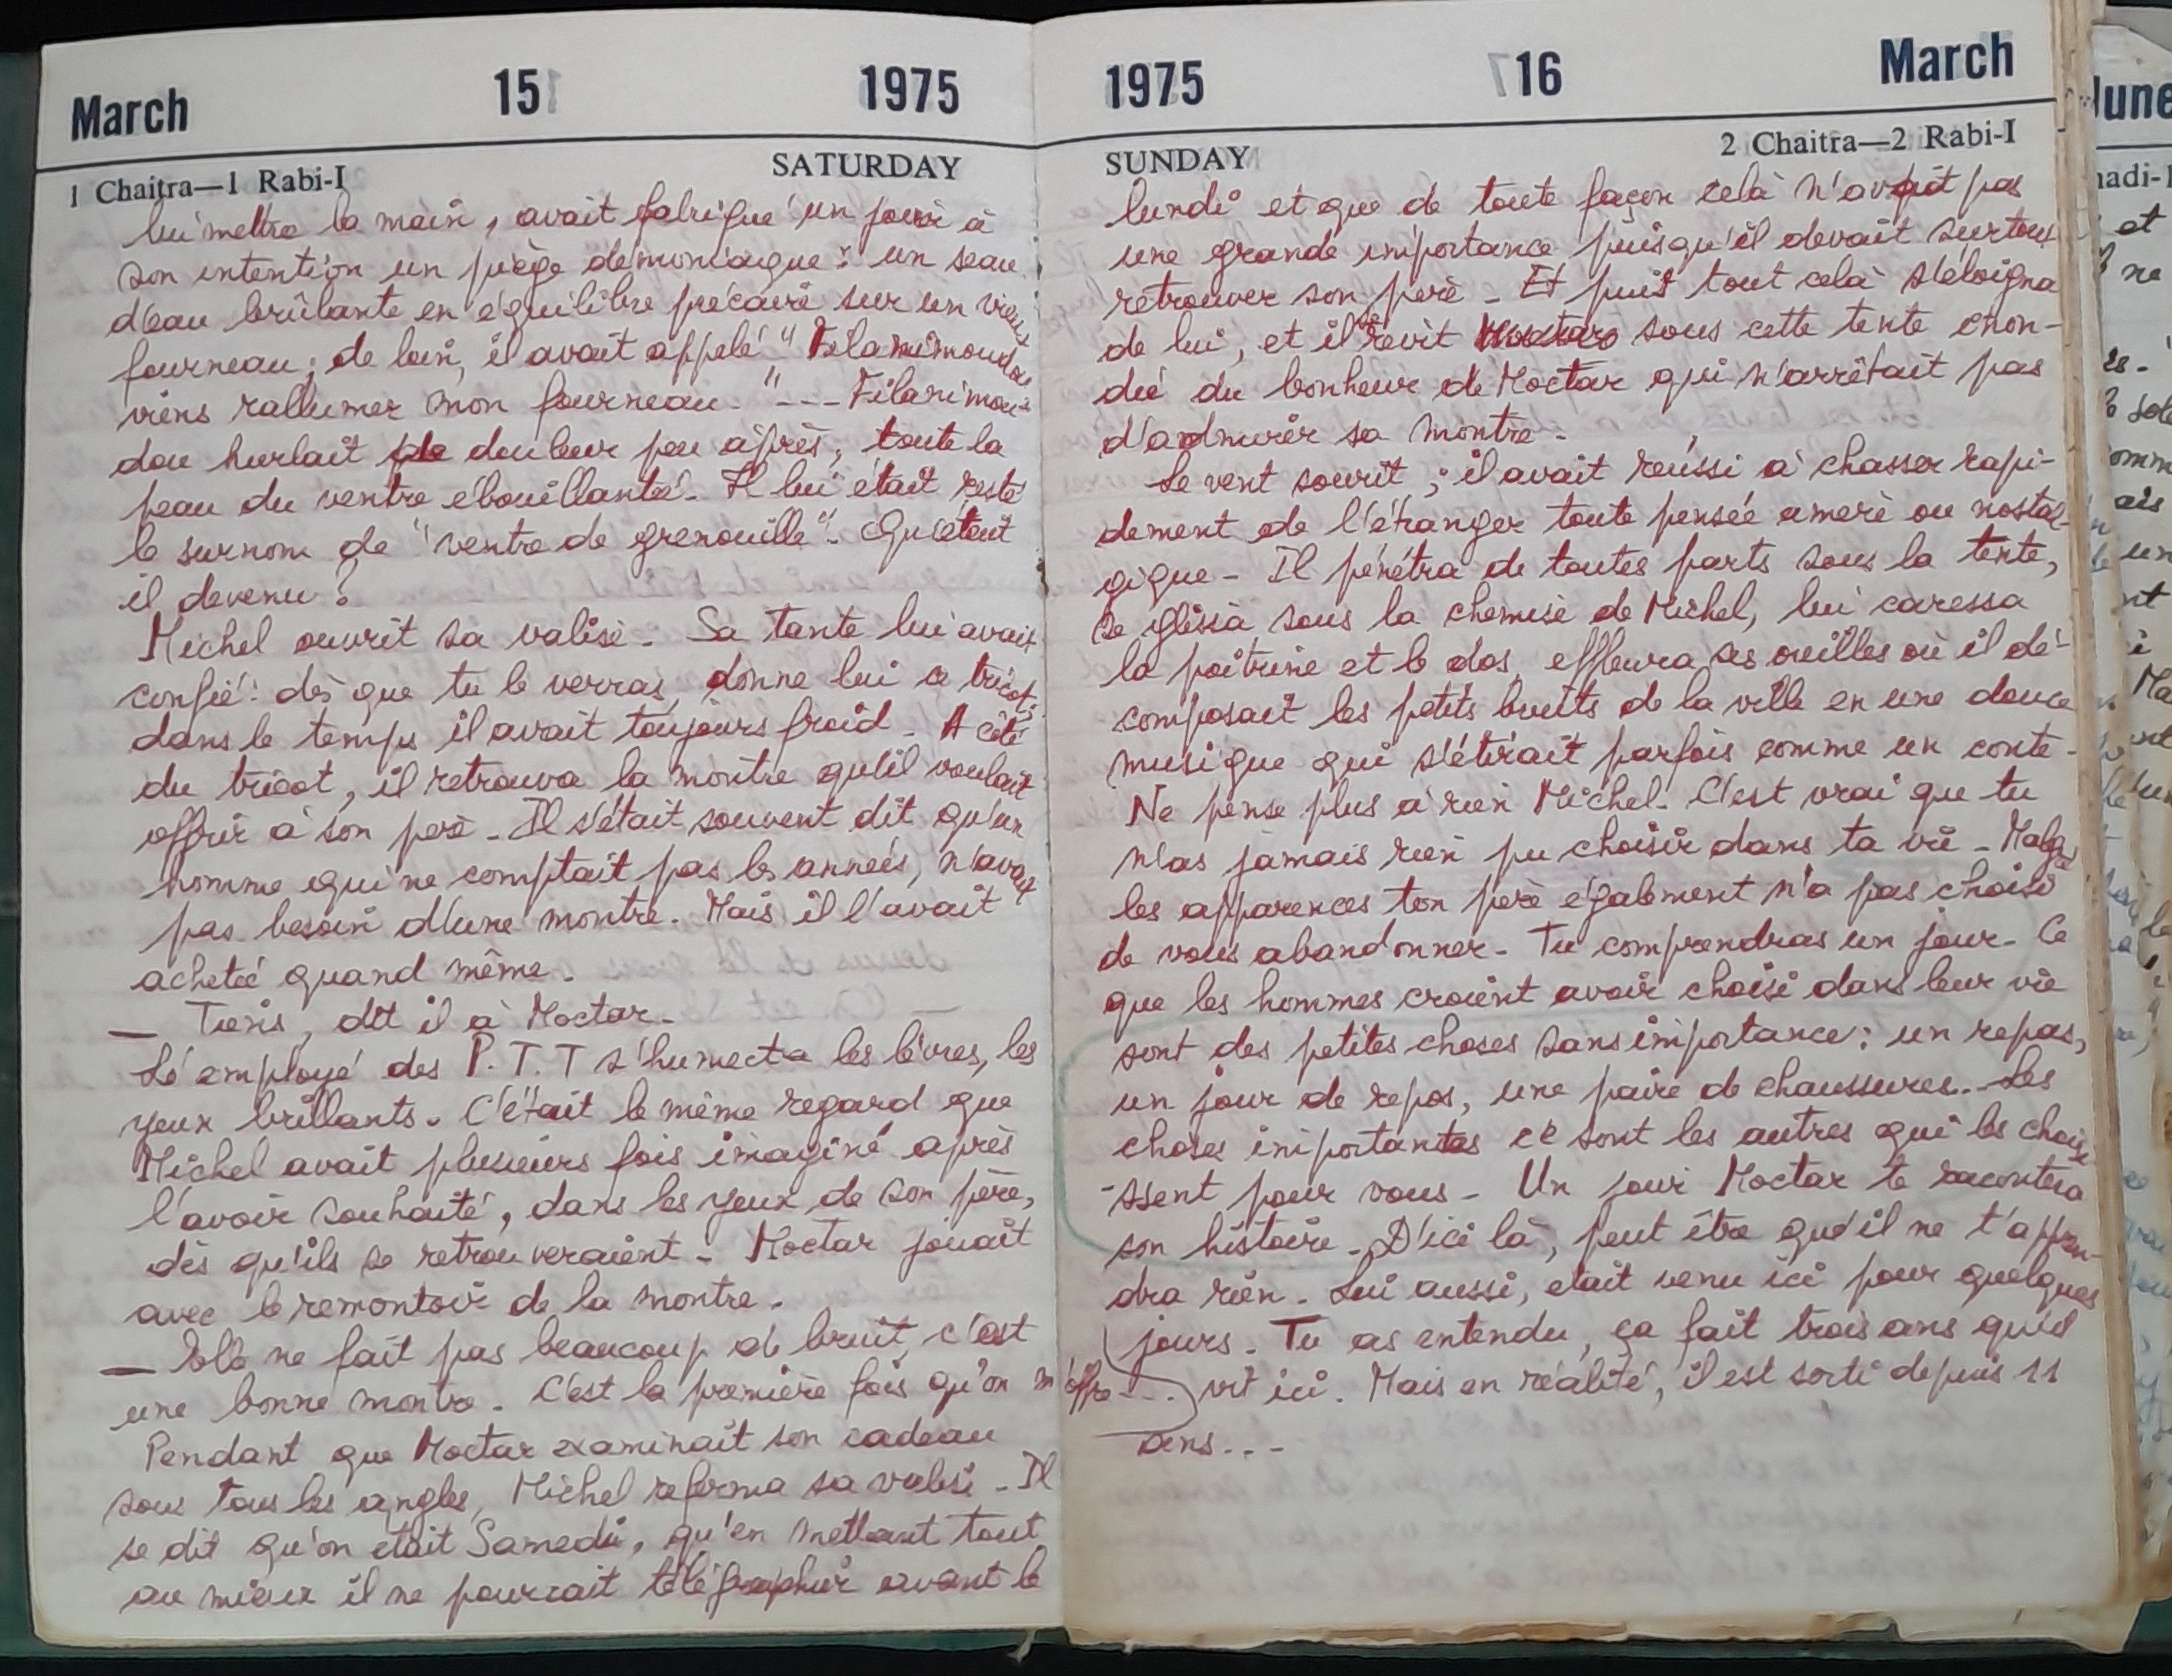 March 15 1975
1 Chaitra—1 Rabi-I SATURDAY
lui mettre la main, avait fabriqué un jour à
son intention un piège démoniaque : un seau
d'eau brûlante en équilibre précaire sur un vieux
fourneau ; de loin, il avait appelé "Filanimoudou
viens rallumer mon fourneau." --- Filanimou-
dou hurlait de douleur peu après, toute la
peau du ventre ébouillantée. Il lui était resté
le surnom de "ventre de grenouille". Qu'était
il devenu ?
Michel ouvrit sa valise. Sa tante lui avait
confié : dès que tu le verras, donne lui ce tricot ;
dans le temps il avait toujours froid. A côté
du tricot, il retrouva la montre qu'il voulait
offrir à son père. Il s'était souvent dit qu'un
homme qui ne comptait pas les années, n'avait
pas besoin d'une montre. Mais il l'avait
achetée quand même.
— Tiens, dit il à Moctar.
Lé employé des P.T.T s'humecta les lèvres, les
yeux brillants. C'était le même regard que
Michel avait plusieurs fois imaginé après
l'avoir souhaité, dans les yeux de son père,
dès qu'ils se retrouveraient. Moctar jouait
avec le remontoir de la montre.
— Elle ne fait pas beaucoup de bruit, c'est
une bonne montre. C'est la première fois qu'on m'offre ...
Pendant que Moctar examinait son cadeau
sous tous les angles, Michel referma sa valise. Il
se dit qu'on était Samedi, qu'en mettant tout
au mieux il ne pourrait télégraphier avant le
1975 16 March
SUNDAY 2 Chaitra—2 Rabi-I
lundi et que de toute façon celà n'avait pas
une grande importance puisqu'il devait surtout
retrouver son père. Et puis tout celà s'éloigna
de lui, et il se revit sous cette tente inon-
dée du bonheur de Moctar qui n'arrêtait pas
d'admirer sa montre.
Le vent sourit ; il avait réussi à chasser rapi-
dement de l'étranger toute pensée amère ou nostal-
gique. Il pénétra de toutes parts sous la tente,
se glissa sous la chemise de Michel, lui caressa
la poitrine et le dos, effleura ses oreilles où il dé-
composait les petits bruits de la ville en une douce
musique qui s'étirait parfois comme un conte.
Ne pense plus à rien Michel. C'est vrai que tu
n'as jamais rien pu choisir dans ta vie. Malgré
les apparences ton père également n'a pas choisi
de vous abandonner. Tu comprendras un jour. Ce
que les hommes croient avoir choisi dans leur vie
sont des petites choses sans importance : un repas,
un jour de repos, une paire de chaussures. Les
choses importantes ce sont les autres qui les choisi-
-ssent pour vous. Un jour Moctar te racontera
son histoire. D'ici là, peut être qu'il ne t'appren-
dra rien. Lui aussi, était venu ici pour quelques
jours. Tu as entendu, ça fait trois ans qu'il
vit ici. Mais en réalité, il est sorti depuis 11
ans...
June